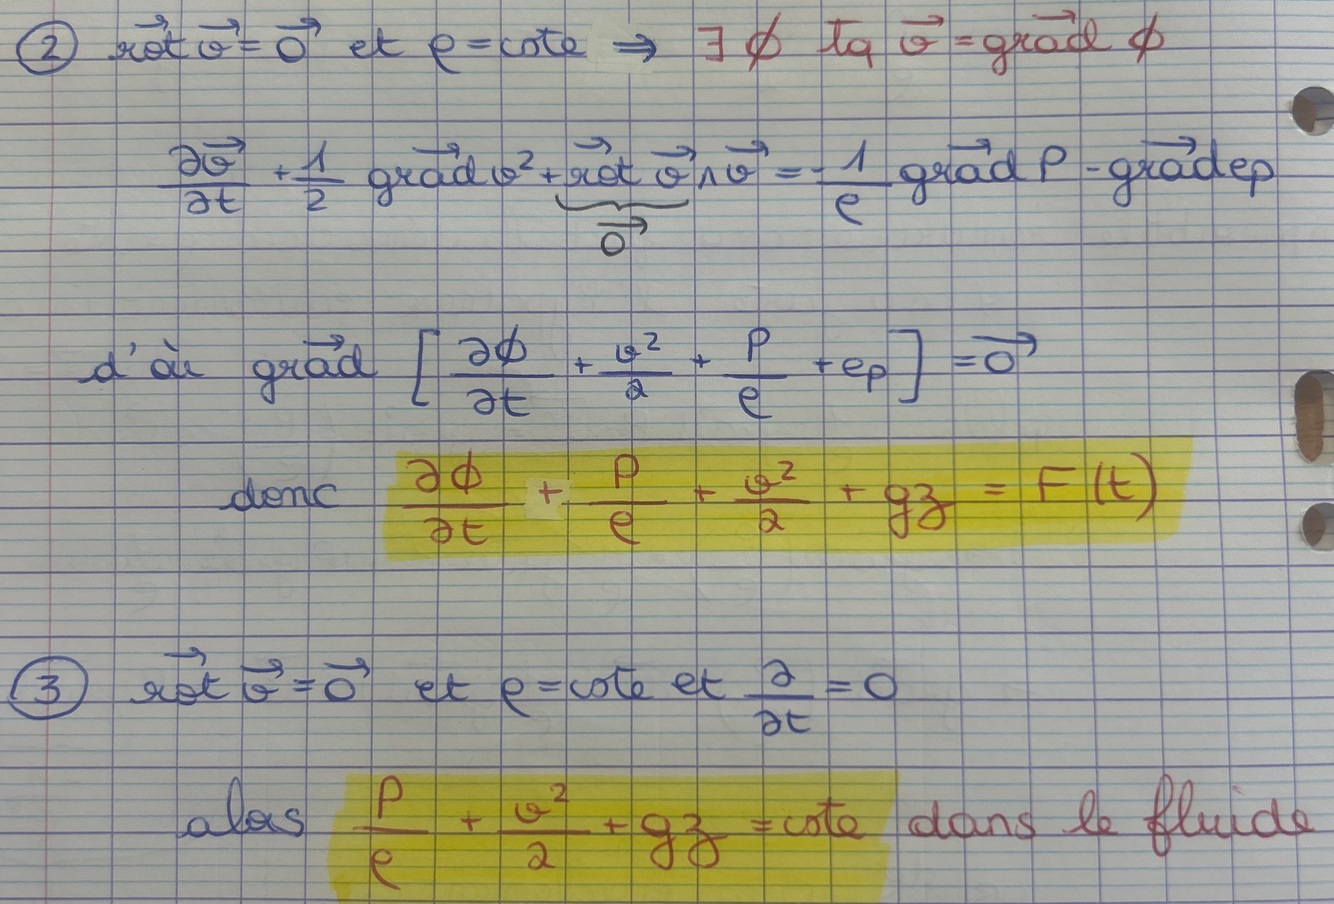 ② $\overrightarrow{rot}\,\vec{v} = \vec{0}$ et $\rho = cste \Rightarrow \exists\, \phi$ tq $\vec{v} = \overrightarrow{grad}\,\phi$
$\frac{\partial \vec{v}}{\partial t} + \frac{1}{2}\overrightarrow{grad}\,v^2 + \underbrace{\overrightarrow{rot}\,\vec{v}}_{\vec{0}} \wedge \vec{v} = -\frac{1}{\rho}\overrightarrow{grad}\,P - \overrightarrow{grad}\,e_p$
d'où $\overrightarrow{grad}\left[\frac{\partial \phi}{\partial t} + \frac{v^2}{2} + \frac{P}{\rho} + e_p\right] = \vec{0}$
donc $\frac{\partial \phi}{\partial t} + \frac{P}{\rho} + \frac{v^2}{2} + gz = F(t)$
③ $\overrightarrow{rot}\,\vec{v} = \vec{0}$ et $\rho = cste$ et $\frac{\partial}{\partial t} = 0$
alors $\frac{P}{\rho} + \frac{v^2}{2} + gz = cste$ dans le fluide